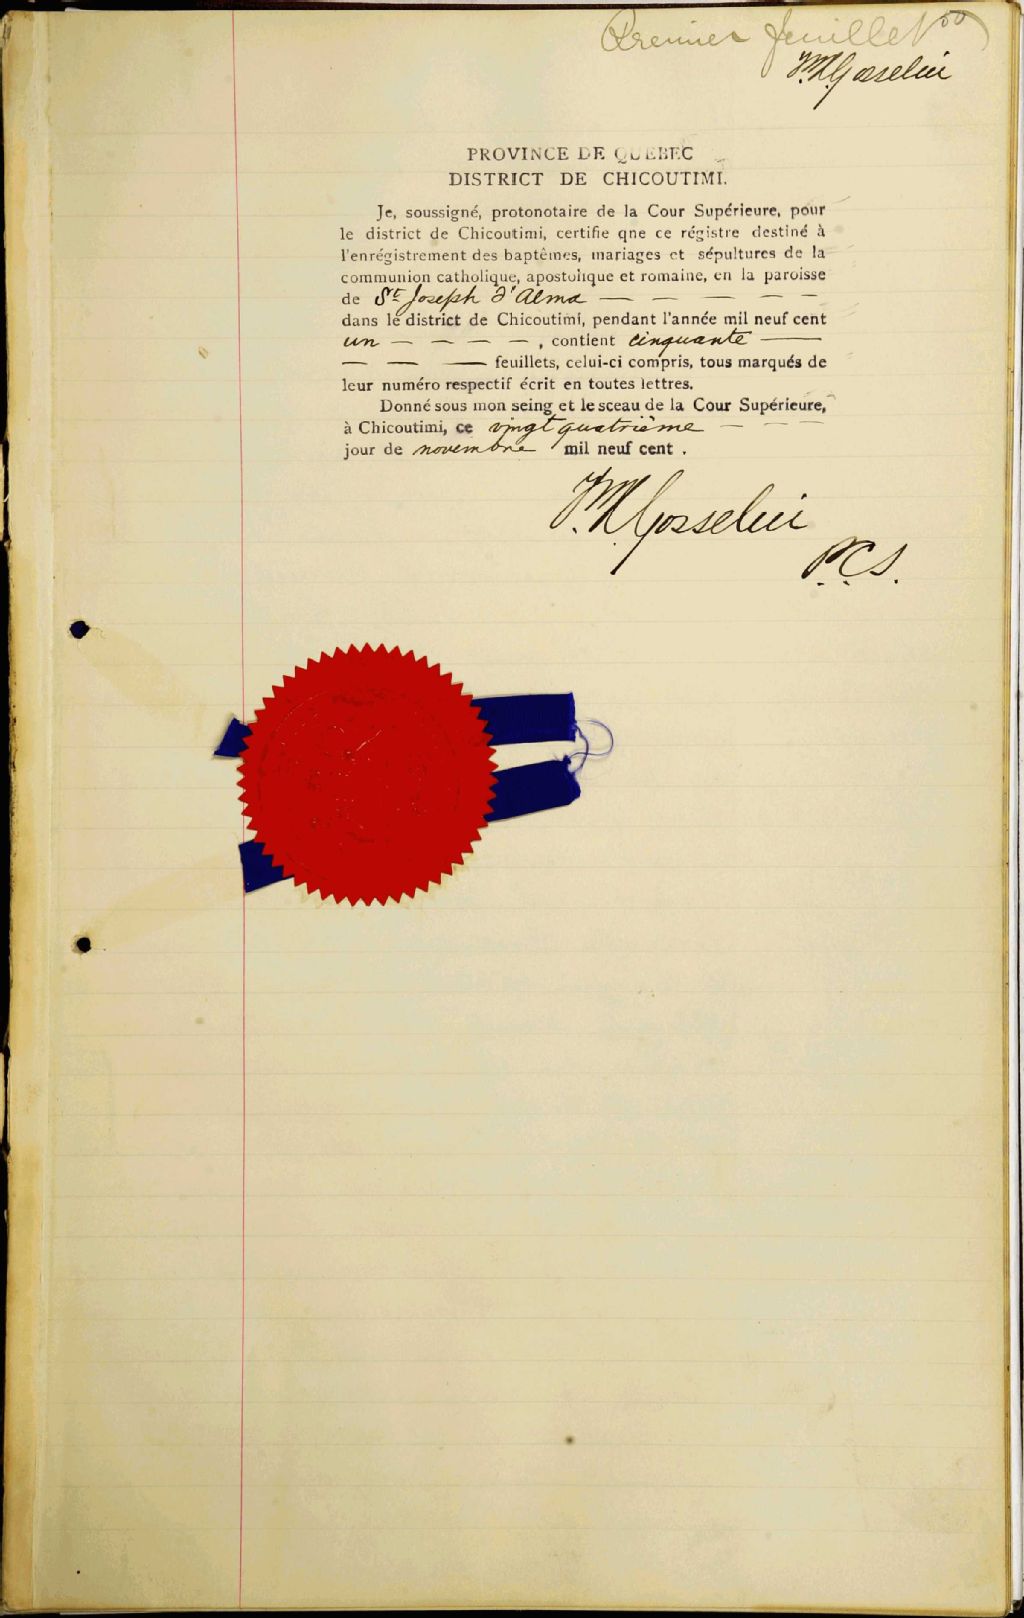 Premier feuillet 50
Gosselin
PROVINCE DE QUEBEC
DISTRICT DE CHICOUTIMI.
Je, soussigné, protonotaire de la Cour Supérieure, pour
le district de Chicoutimi, certifie qne ce régistre destiné à
l'enrégistrement des baptêmes, mariages et sépultures de la
communion catholique, apostolique et romaine, en la paroisse
de St Joseph d'Alma — — — — — —
dans le district de Chicoutimi, pendant l'année mil neuf cent
un — — — — , contient cinquante —
— — — feuillets, celui-ci compris, tous marqués de
leur numéro respectif écrit en toutes lettres.
Donné sous mon seing et le sceau de la Cour Supérieure,
à Chicoutimi, ce vingt quatrième — — —
jour de novembre mil neuf cent .
Gosselin
P.C.S.